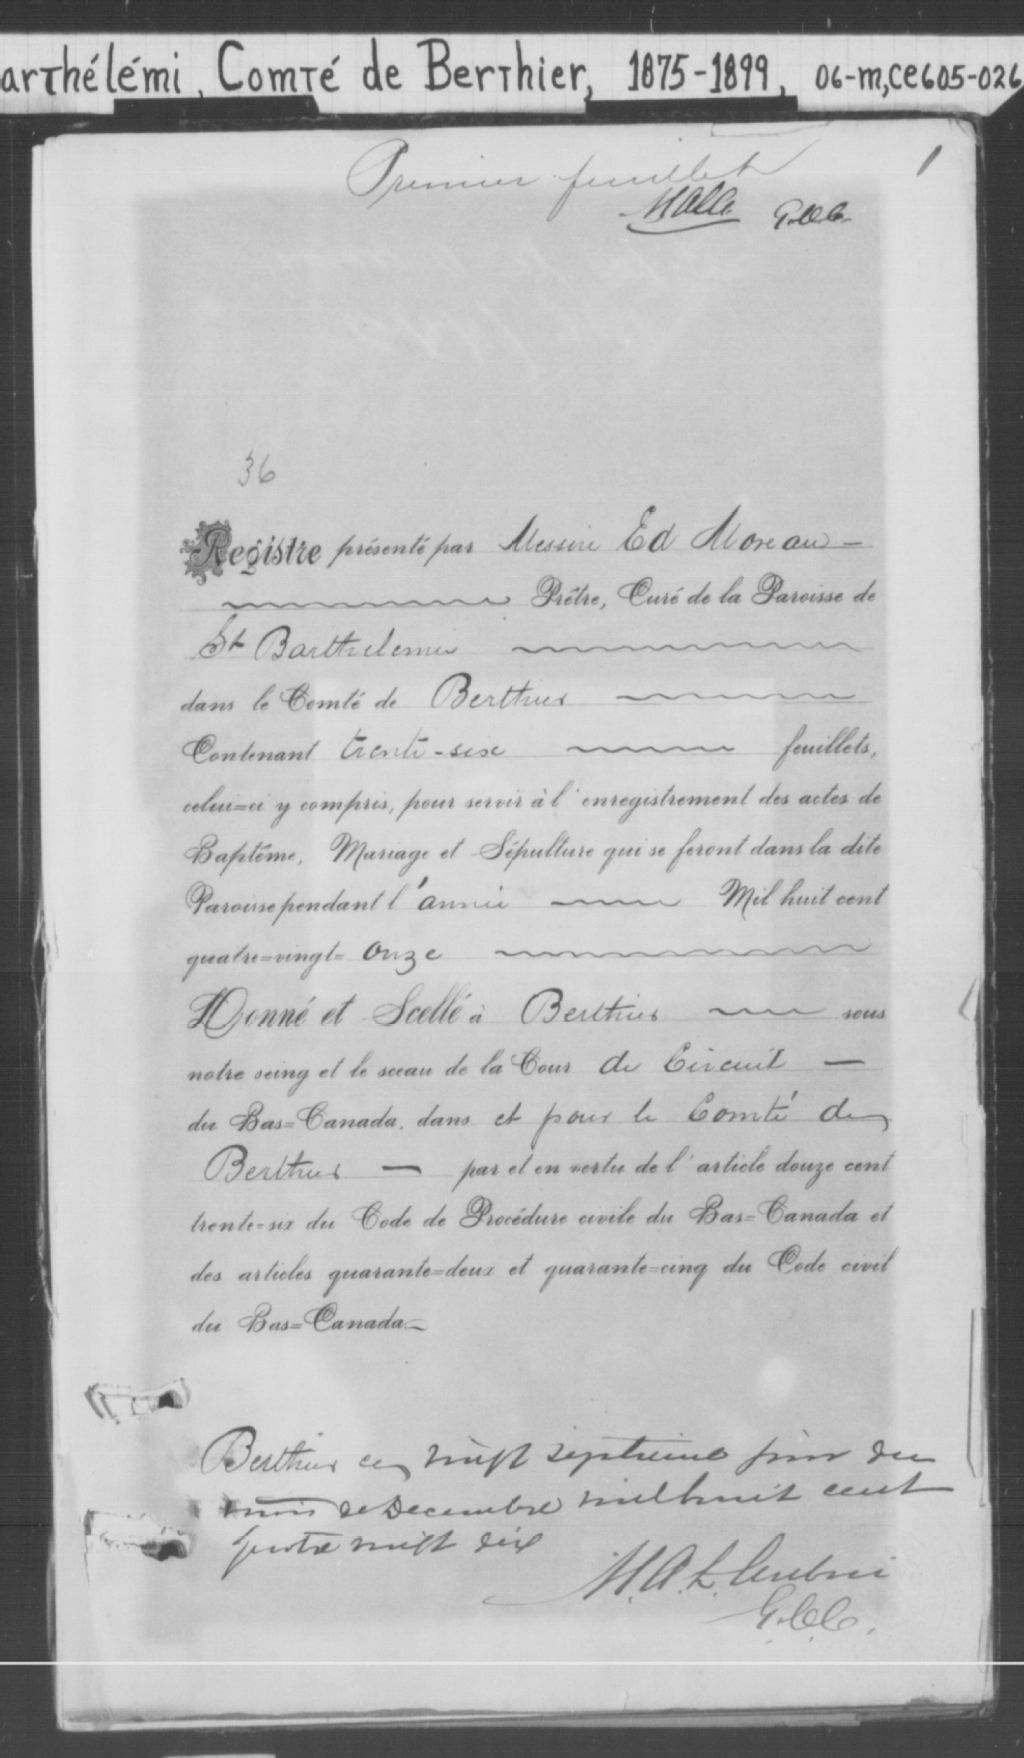 arthélémi, Comté de Berthier, 1875-1899, 06-m,CE605-026
Premier feuillet
1
MALA G.C.C.
36
Registre présenté par Messire Ed Moreau —
Prêtre, Curé de la Paroisse de
St Barthelemi
dans le Comté de Berthier
Contenant trente-six feuillets,
celui=ci y compris, pour servir à l'enregistrement des actes de
Baptême, Mariage et Sépulture qui se feront dans la dite
Paroisse pendant l'année Mil huit cent
quatre=vingt= onze
Donné et Scellé à Berthier sous
notre seing et le sceau de la Cour de Circuit —
du Bas=Canada, dans et pour le Comté de
Berthier — par et en vertu de l'article douze cent
trente=six du Code de Procédure civile du Bas=Canada et
des articles quarante=deux et quarante=cinq du Code civil
du Bas=Canada—
Berthier ce vingt septieme jour du
mois de Decembre mil huit cent
quatre vingt dix
M. A. L.
G.C.C.